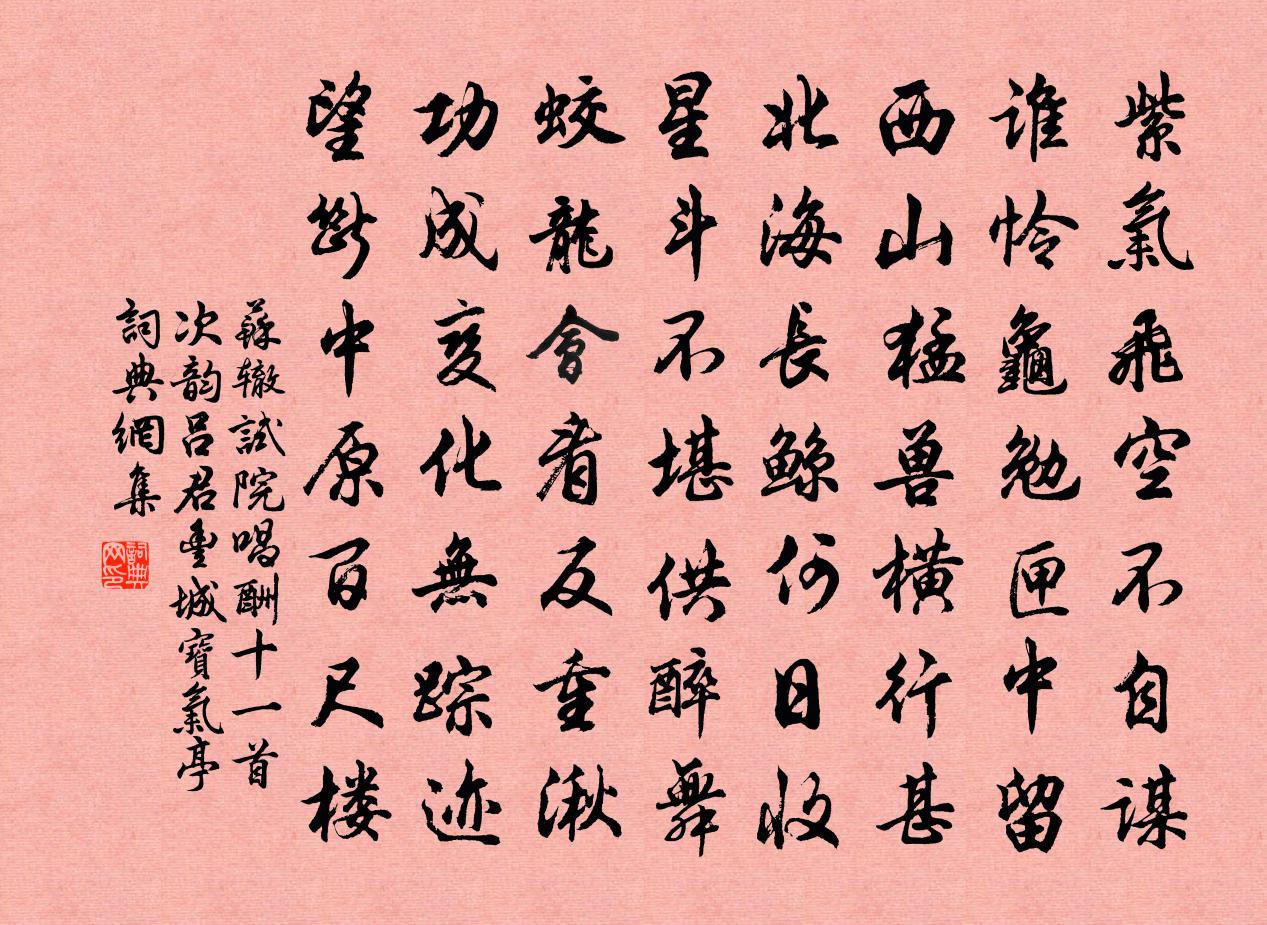 紫氣飛空不自謀
誰怜龜勉匣中留
西山猛兽橫行甚
北海長鯨何日收
星斗不堪供醉舞
蛟龍會看反重湫
功成变化無踪迹
望斷中原百尺楼
蘇辙試院唱酬十一首
次韵吕君豐城寶氣亭
詞典網集
詞典网印